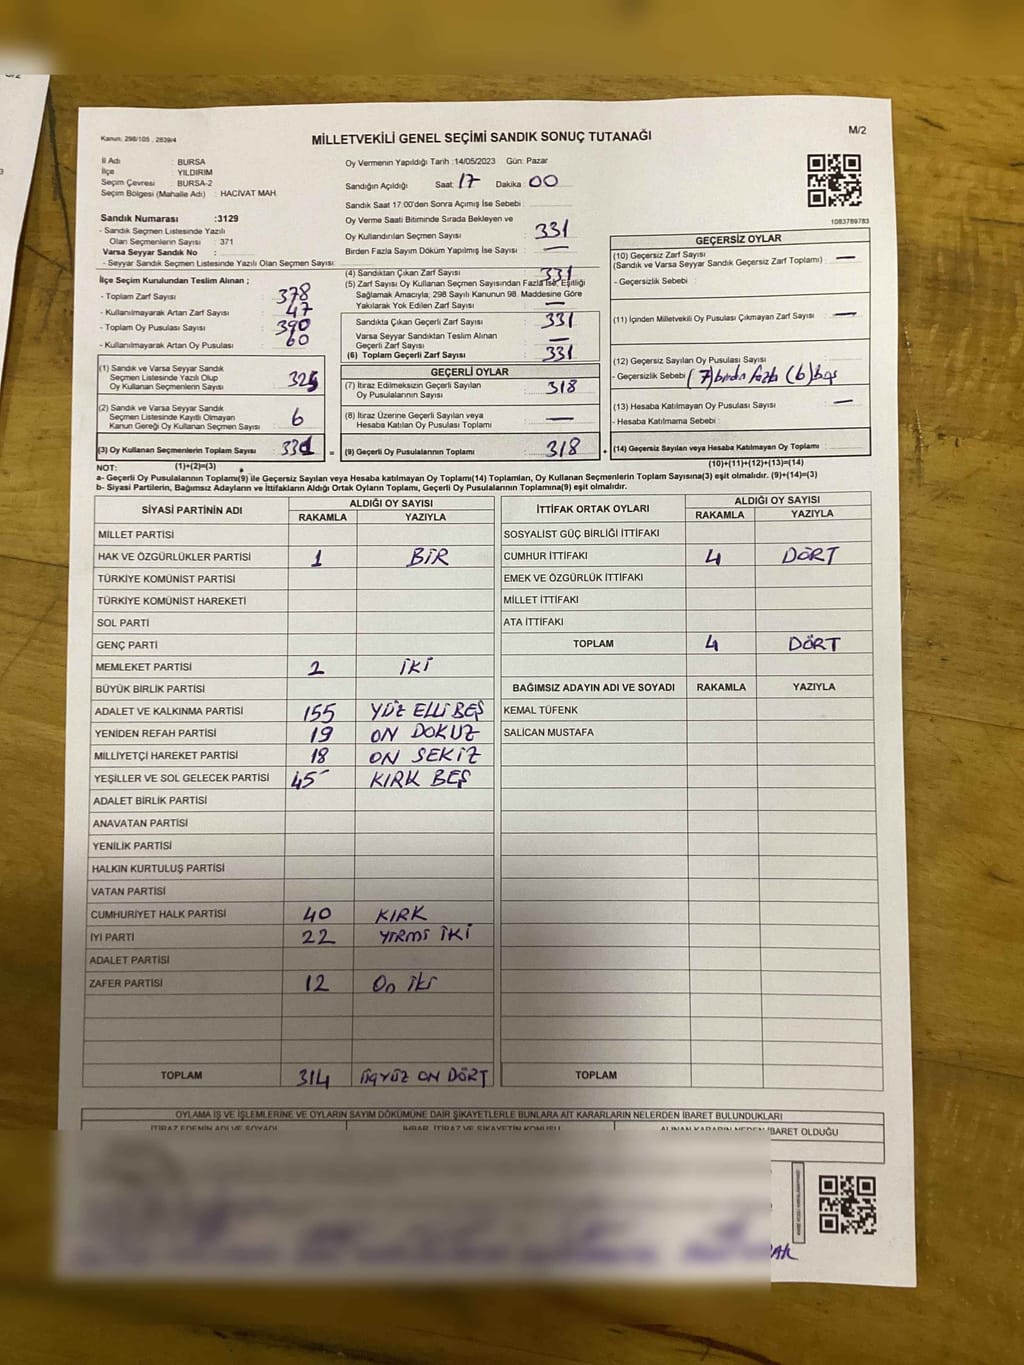 Kanun, 298/105 , 2839/4
MİLLETVEKİLİ GENEL SEÇİMİ SANDIK SONUÇ TUTANAĞI
M/2
İl Adı : BURSA
İlçe : YILDIRIM
Seçim Çevresi : BURSA-2
Seçim Bölgesi (Mahalle Adı) : HACİVAT MAH.
Sandık Numarası :3129
- Sandık Seçmen Listesinde Yazılı
Olan Seçmenlerin Sayısı : 371
Varsa Seyyar Sandık No :
- Seyyar Sandık Seçmen Listesinde Yazılı Olan Seçmen Sayısı:
Oy Vermenin Yapıldığı Tarih :14/05/2023 Gün: Pazar
Sandığın Açıldığı Saat : 17 Dakika : 00
Sandık Saat 17:00'den Sonra Açımış İse Sebebi :
Oy Verme Saati Bitiminde Sırada Bekleyen ve
Oy Kullandırılan Seçmen Sayısı : 331
Birden Fazla Sayım Döküm Yapılmış İse Sayısı : —
1083789783
İlçe Seçim Kurulundan Teslim Alınan ;
- Toplam Zarf Sayısı : 378
- Kullanılmayarak Artan Zarf Sayısı : 47
- Toplam Oy Pusulası Sayısı : 390
- Kullanılmayarak Artan Oy Pusulası : 60
(1) Sandık ve Varsa Seyyar Sandık
Seçmen Listesinde Yazılı Olup
Oy Kullanan Seçmenlerin Sayısı : 325
(2) Sandık ve Varsa Seyyar Sandık
Seçmen Listesinde Kayıtlı Olmayan
Kanun Gereği Oy Kullanan Seçmen Sayısı : 6
(3) Oy Kullanan Seçmenlerin Toplam Sayısı : 331 =
(4) Sandıktan Çıkan Zarf Sayısı : 331
(5) Zarf Sayısı Oy Kullanan Seçmen Sayısından Fazla İse, Eşitliği
Sağlamak Amacıyla, 298 Sayılı Kanunun 98. Maddesine Göre
Yakılarak Yok Edilen Zarf Sayısı : —
Sandıkta Çıkan Geçerli Zarf Sayısı : 331
Varsa Seyyar Sandıktan Teslim Alınan
Geçerli Zarf Sayısı : —
(6) Toplam Geçerli Zarf Sayısı : 331
GEÇERLİ OYLAR
(7) İtiraz Edilmeksizin Geçerli Sayılan
Oy Pusulasının Sayısı : 318
(8) İtiraz Üzerine Geçerli Sayılan veya
Hesaba Katılan Oy Pusulası Toplamı : —
(9) Geçerli Oy Pusulalarının Toplamı : 318 +
GEÇERSİZ OYLAR
(10) Geçersiz Zarf Sayısı
(Sandık ve Varsa Seyyar Sandık Geçersiz Zarf Toplamı) : —
- Geçersizlik Sebebi :
(11) İçinden Milletvekili Oy Pusulası Çıkmayan Zarf Sayısı : —
(12) Geçersiz Sayılan Oy Pusulası Sayısı :
- Geçersizlik Sebebi : (7) birden fazla (6) boş
(13) Hesaba Katılmayan Oy Pusulası Sayısı : —
- Hesaba Katılmama Sebebi :
(14) Geçersiz Sayılan veya Hesaba Katılmayan Oy Toplamı :
NOT: (1)+(2)=(3)
(10)+(11)+(12)+(13)=(14)
a- Geçerli Oy Pusulalarının Toplamı(9) ile Geçersiz Sayılan veya Hesaba katılmayan Oy Toplamı(14) Toplamları, Oy Kullanan Seçmenlerin Toplam Sayısına(3) eşit olmalıdır. (9)+(14)=(3)
b- Siyasi Partilerin, Bağımsız Adayların ve İttifakların Aldığı Ortak Oyların Toplamı, Geçerli Oy Pusulalarının Toplamına(9) eşit olmalıdır.
SİYASİ PARTİNİN ADI ALDIĞI OY SAYISI
RAKAMLA YAZIYLA
MİLLET PARTİSİ
HAK VE ÖZGÜRLÜKLER PARTİSİ 1 BİR
TÜRKİYE KOMÜNİST PARTİSİ
TÜRKİYE KOMÜNİST HAREKETİ
SOL PARTİ
GENÇ PARTİ
MEMLEKET PARTİSİ 2 İKİ
BÜYÜK BİRLİK PARTİSİ
ADALET VE KALKINMA PARTİSİ 155 YÜZ ELLİ BEŞ
YENİDEN REFAH PARTİSİ 19 ON DOKUZ
MİLLİYETÇİ HAREKET PARTİSİ 18 ON SEKİZ
YEŞİLLER VE SOL GELECEK PARTİSİ 45 KIRK BEŞ
ADALET BİRLİK PARTİSİ
ANAVATAN PARTİSİ
YENİLİK PARTİSİ
HALKIN KURTULUŞ PARTİSİ
VATAN PARTİSİ
CUMHURİYET HALK PARTİSİ 40 KIRK
İYİ PARTİ 22 YİRMİ İKİ
ADALET PARTİSİ
ZAFER PARTİSİ 12 On iki
TOPLAM 314 ÜÇYÜZ ON DÖRT
İTTİFAK ORTAK OYLARI ALDIĞI OY SAYISI
RAKAMLA YAZIYLA
SOSYALİST GÜÇ BİRLİĞİ İTTİFAKI
CUMHUR İTTİFAKI 4 DÖRT
EMEK VE ÖZGÜRLÜK İTTİFAKI
MİLLET İTTİFAKI
ATA İTTİFAKI
TOPLAM 4 DÖRT
BAĞIMSIZ ADAYIN ADI VE SOYADI RAKAMLA YAZIYLA
KEMAL TÜFENK
SALİCAN MUSTAFA
TOPLAM
OYLAMA İŞ VE İŞLEMLERİNE VE OYLARIN SAYIM DÖKÜMÜNE DAİR ŞİKAYETLERLE BUNLARA AİT KARARLARIN NELERDEN İBARET BULUNDUKLARI
İTİRAZ EDENİN ADI VE SOYADI İHBAR, İTİRAZ VE ŞİKAYETİN KONUSU ALINAN KARARIN NEDEN İBARET OLDUĞU